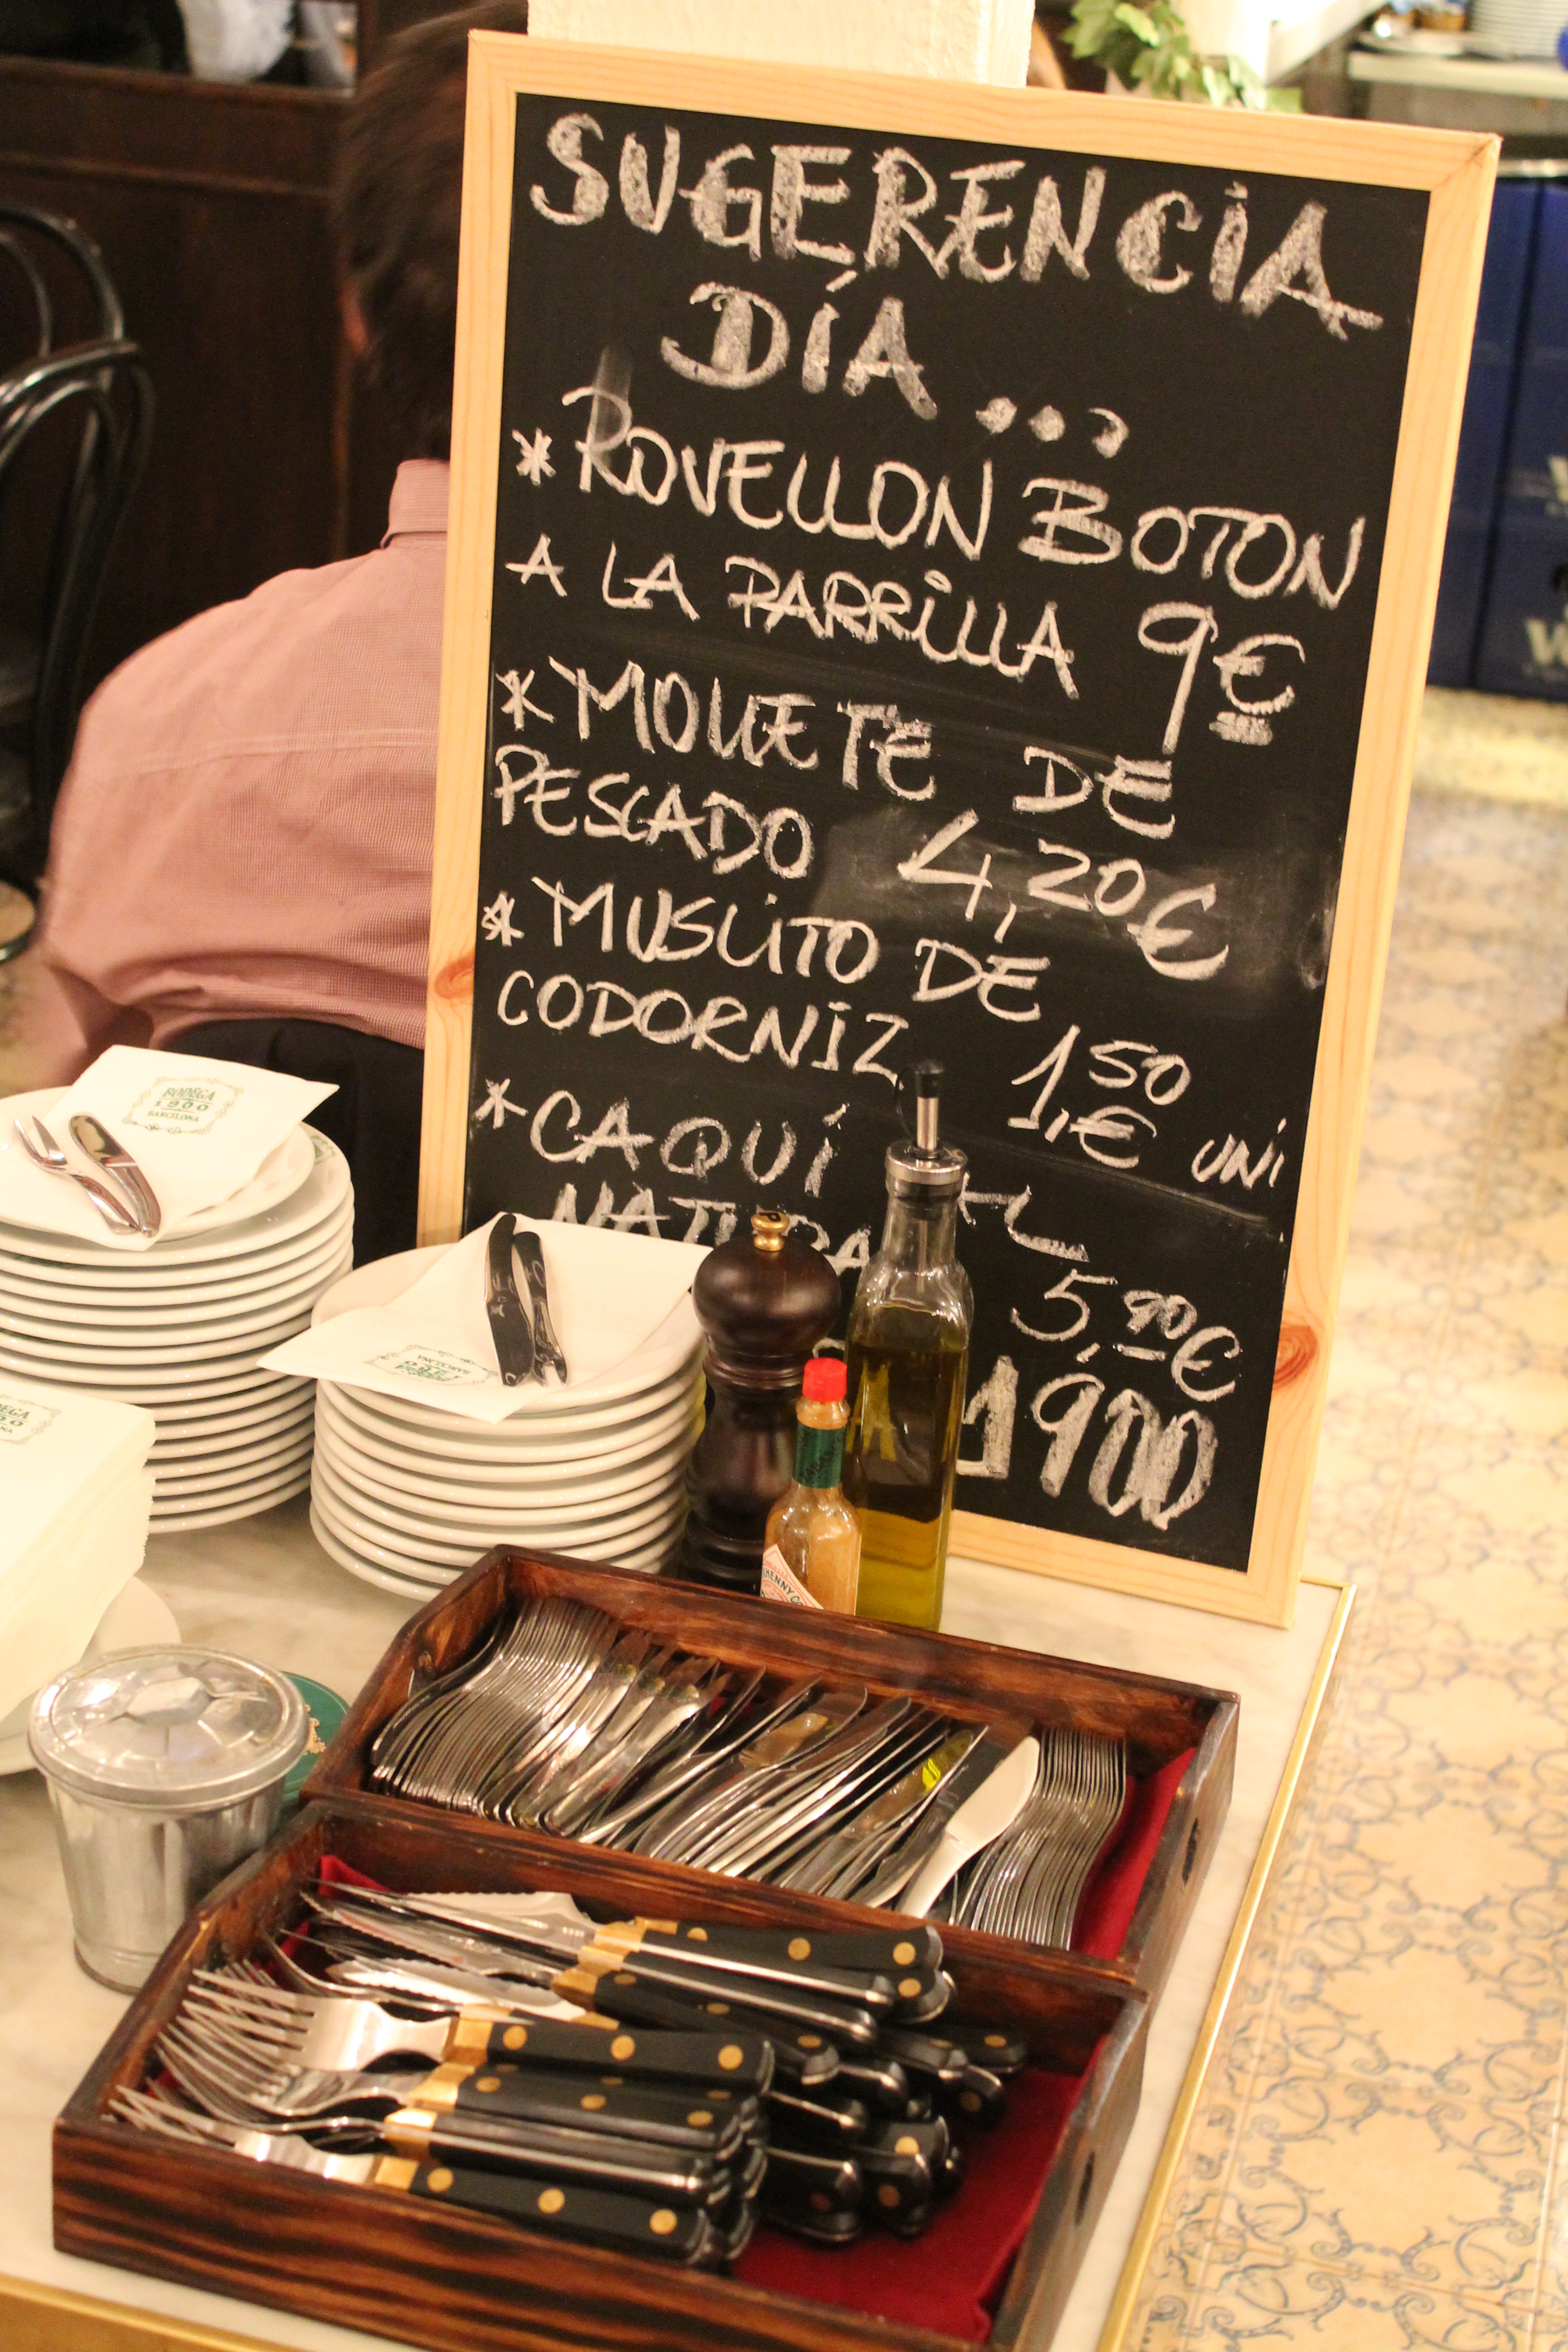 SUGERENCIA
DÍA ...
* ROVELLON BOTON
A LA PARRILLA 9€
* MOLLETE DE
PESCADO 4,20€
* MUSLITO DE
CODORNIZ 1,50€ UNI
* CAQUÍ AL
NATURAL
5,90€
1900
BODEGA
1900
BARCELONA
BODEGA
1900
BARCELONA